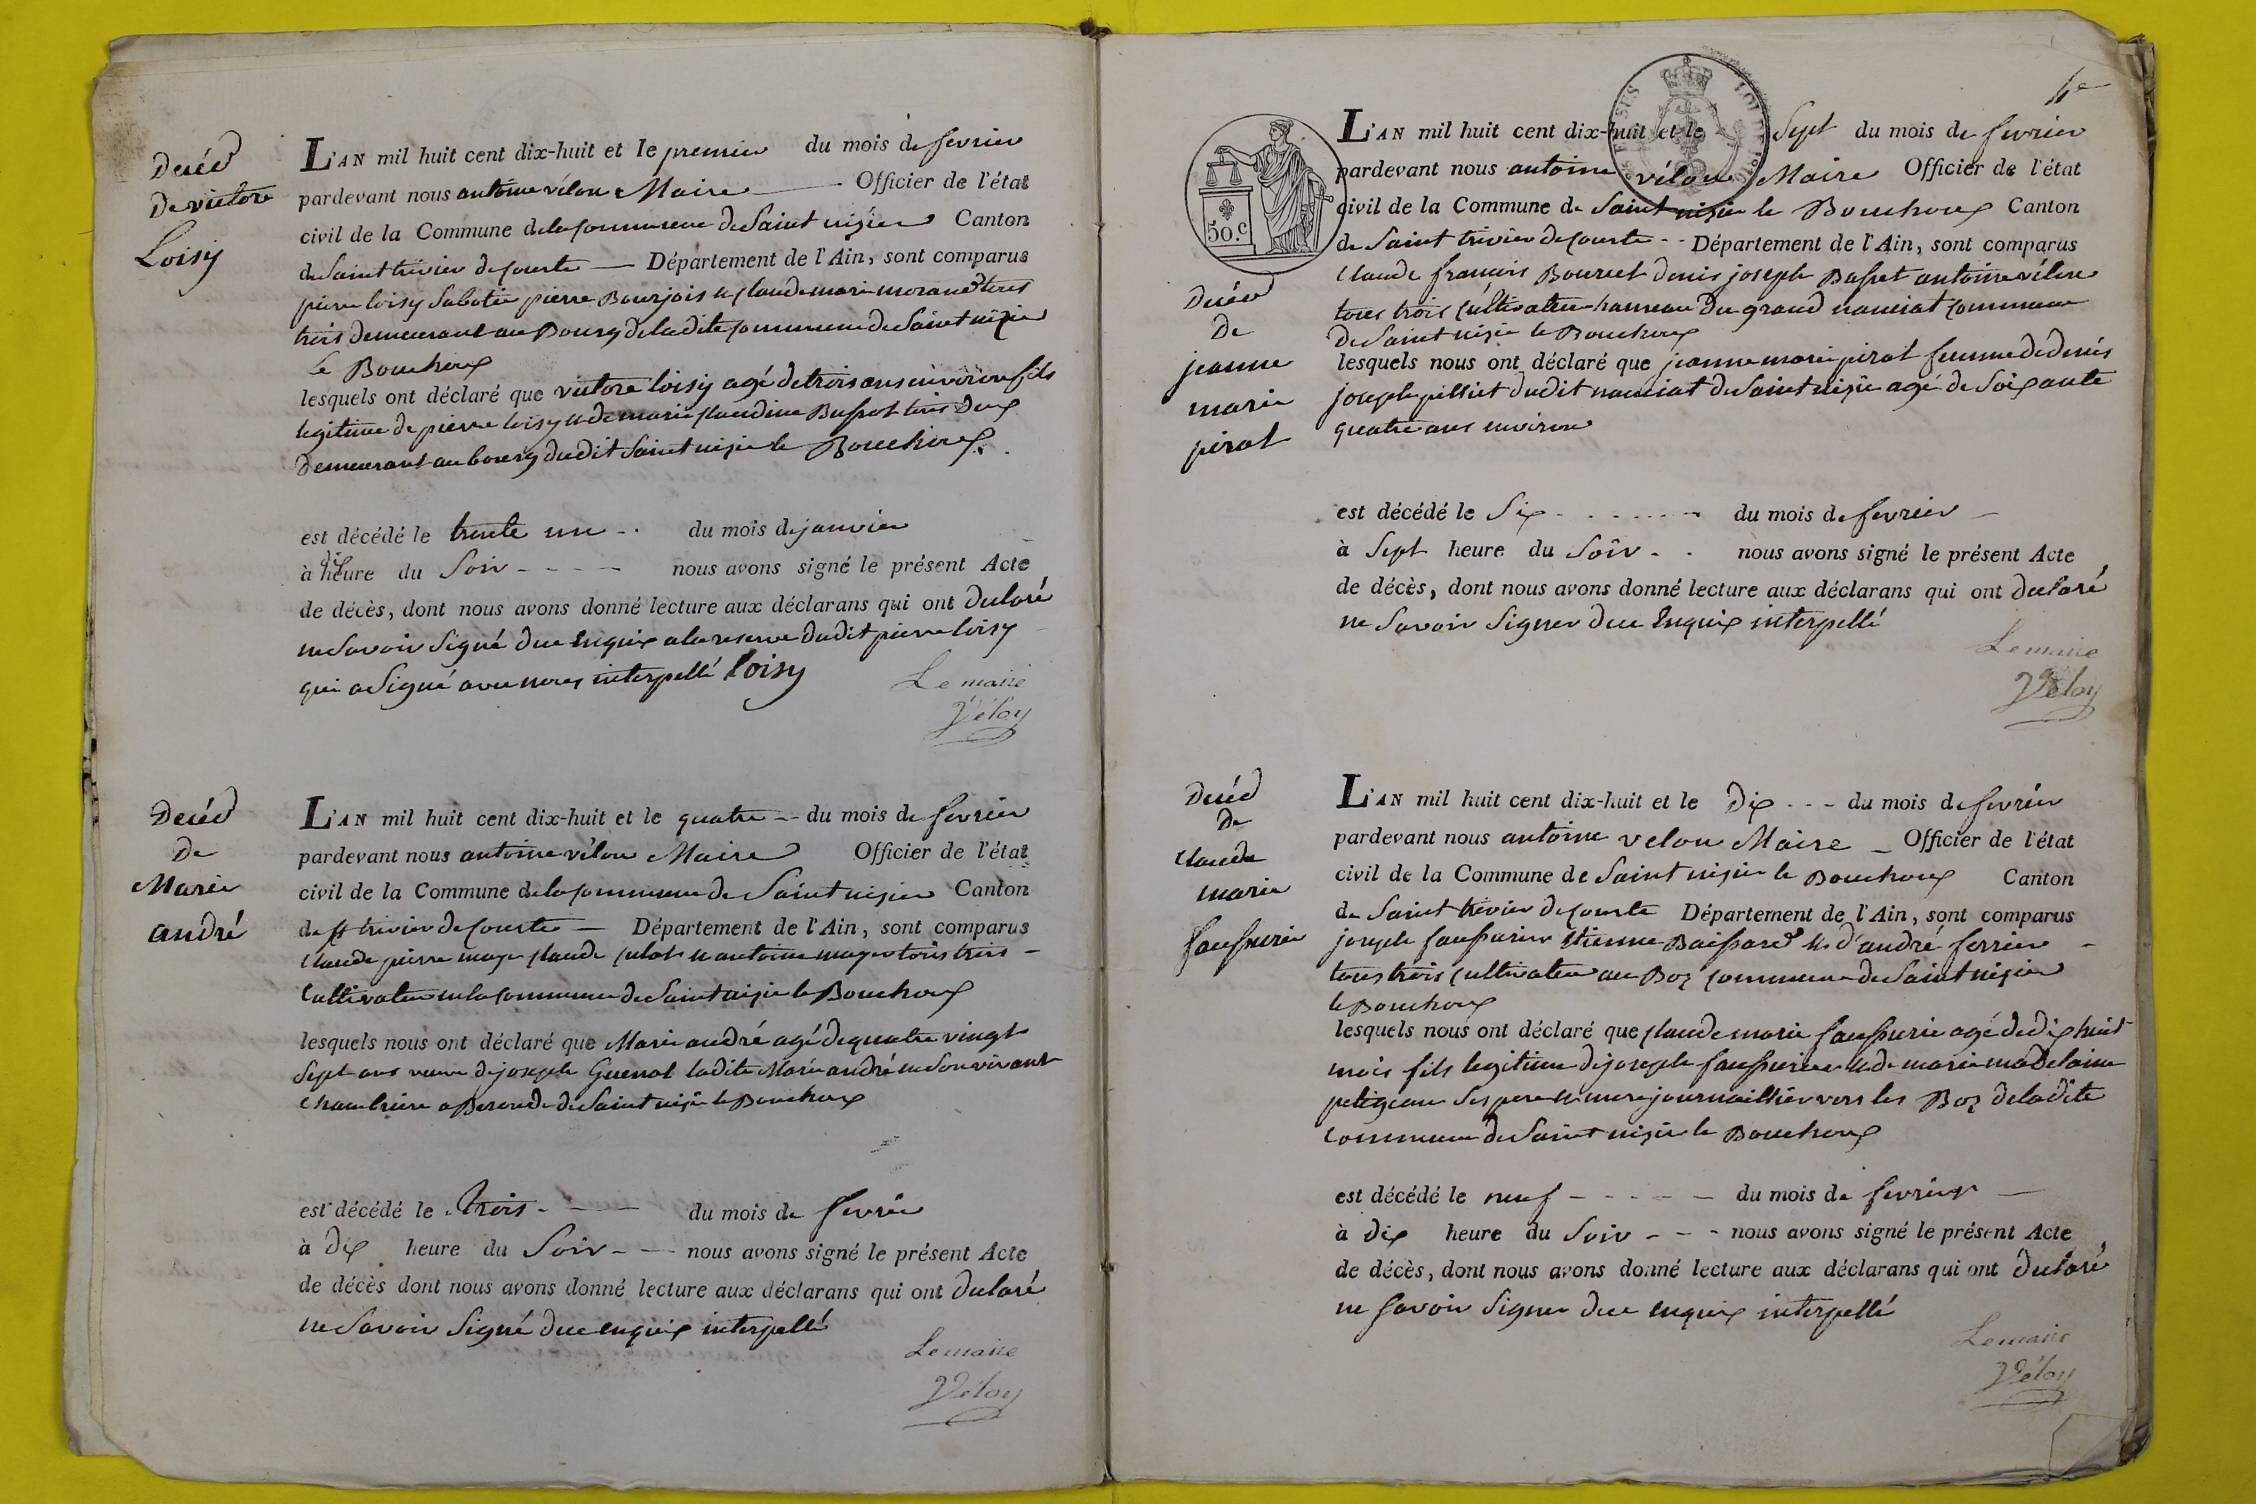 Decéd
De victore
Loisy
L'AN mil huit cent dix-huit et le premier du mois de fevrier
pardevant nous antoine vélon Maire Officier de l'état
civil de la Commune de la Commune de Saint nizier Canton
de Saint trivier de Courte Département de l'Ain, sont comparus
pierre loisy Sabotie pierre Bourjois et Claude marie morand tous
trois demeurant au Bourg de ladite Commune de Saint nizie
le Bouchoux
lesquels ont déclaré que victore loisy agé de trois ans environ fils
legitime de pierre loisy et de marie Claudine Bassot tous deux
Demeurant au bourg dudit Saint nizie le Bouchoux
est décédé le trente un du mois de janvier
à dix heure du Soir nous avons signé le présent Acte
de décès, dont nous avons donné lecture aux déclarans qui ont déclaré
ne Savoir Signé duc Enquix a la reserve dudit pierre loisy
qui a Signé avec nous interpellé loisy
Le maire
Véloy
Decéd
De
Marie
andré
L'AN mil huit cent dix-huit et le quatre du mois de fevrier
pardevant nous antoine vélon Maire Officier de l'état
civil de la Commune de la Commune de Saint nizier Canton
de St trivier de Courte Département de l'Ain, sont comparus
Claude pierre moyer Claude Culot et antoine moyer tous trois
Cultivateur en la Commune de Saint nizie le Bouchoux
lesquels nous ont déclaré que Marie andré agé de quatre vingt
Sept ans veuve de joseph Guenot ladite Marie andré en Son vivant
Chambriere a de Saint nizie le Bouchoux
est décédé le trois du mois de fevrie
à Dix heure du Soir nous avons signé le présent Acte
de décès dont nous avons donné lecture aux déclarans qui ont declaré
ne Savoir Signé duc enquix interpellé
Le maire
Véloy
4e
50.c
Decéd
De
jeanne
marie
pirat
L'AN mil huit cent dix-huit et le Sept du mois de fevrier
pardevant nous antoine vélon Maire Officier de l'état
civil de la Commune de Saint nizie le Bouchoux Canton
de Saint trivier de Courte Département de l'Ain, sont comparus
Claude françois Bourcet denis joseph Basset antoine vélon
tous trois Cultivateur hameau du grand nanciat Commune
de Saint nizie le Bouchoux
lesquels nous ont déclaré que jeanne marie pirat femme de denis
joseph pilliet dudit nanciat de Saint nizie agé de Soixante
quatre ans environ
est décédé le Six du mois de fevrier
à Sept heure du Soir nous avons signé le présent Acte
de décès, dont nous avons donné lecture aux déclarans qui ont declaré
ne Savoir Signer duc Enquix interpellé
Le maire
Véloy
Decéd
De
Claude
marie
faussurie
L'AN mil huit cent dix-huit et le Dix du mois de fevrier
pardevant nous antoine velon Maire Officier de l'état
civil de la Commune de Saint nizie le Bouchoux Canton
de Saint trivier de Courte Département de l'Ain, sont comparus
joseph faussurier Etienne Baissard et d'andré ferrier
tous trois Cultivateur au Boz Commune de Saint nizier
le Bouchoux
lesquels nous ont déclaré que Claude marie faussurie agé de dix huit
mois fils legitime de joseph faussurier et de marie madelaine
petitjean Ses pere et mere journaillier vers les Boz de ladite
Commune de Saint nizie le Bouchoux
est décédé le neuf du mois de fevrier
à dix heure du Soir nous avons signé le présent Acte
de décès, dont nous avons donné lecture aux déclarans qui ont declaré
ne Savoir Signer duc enquix interpellé
Le maire
Véloy